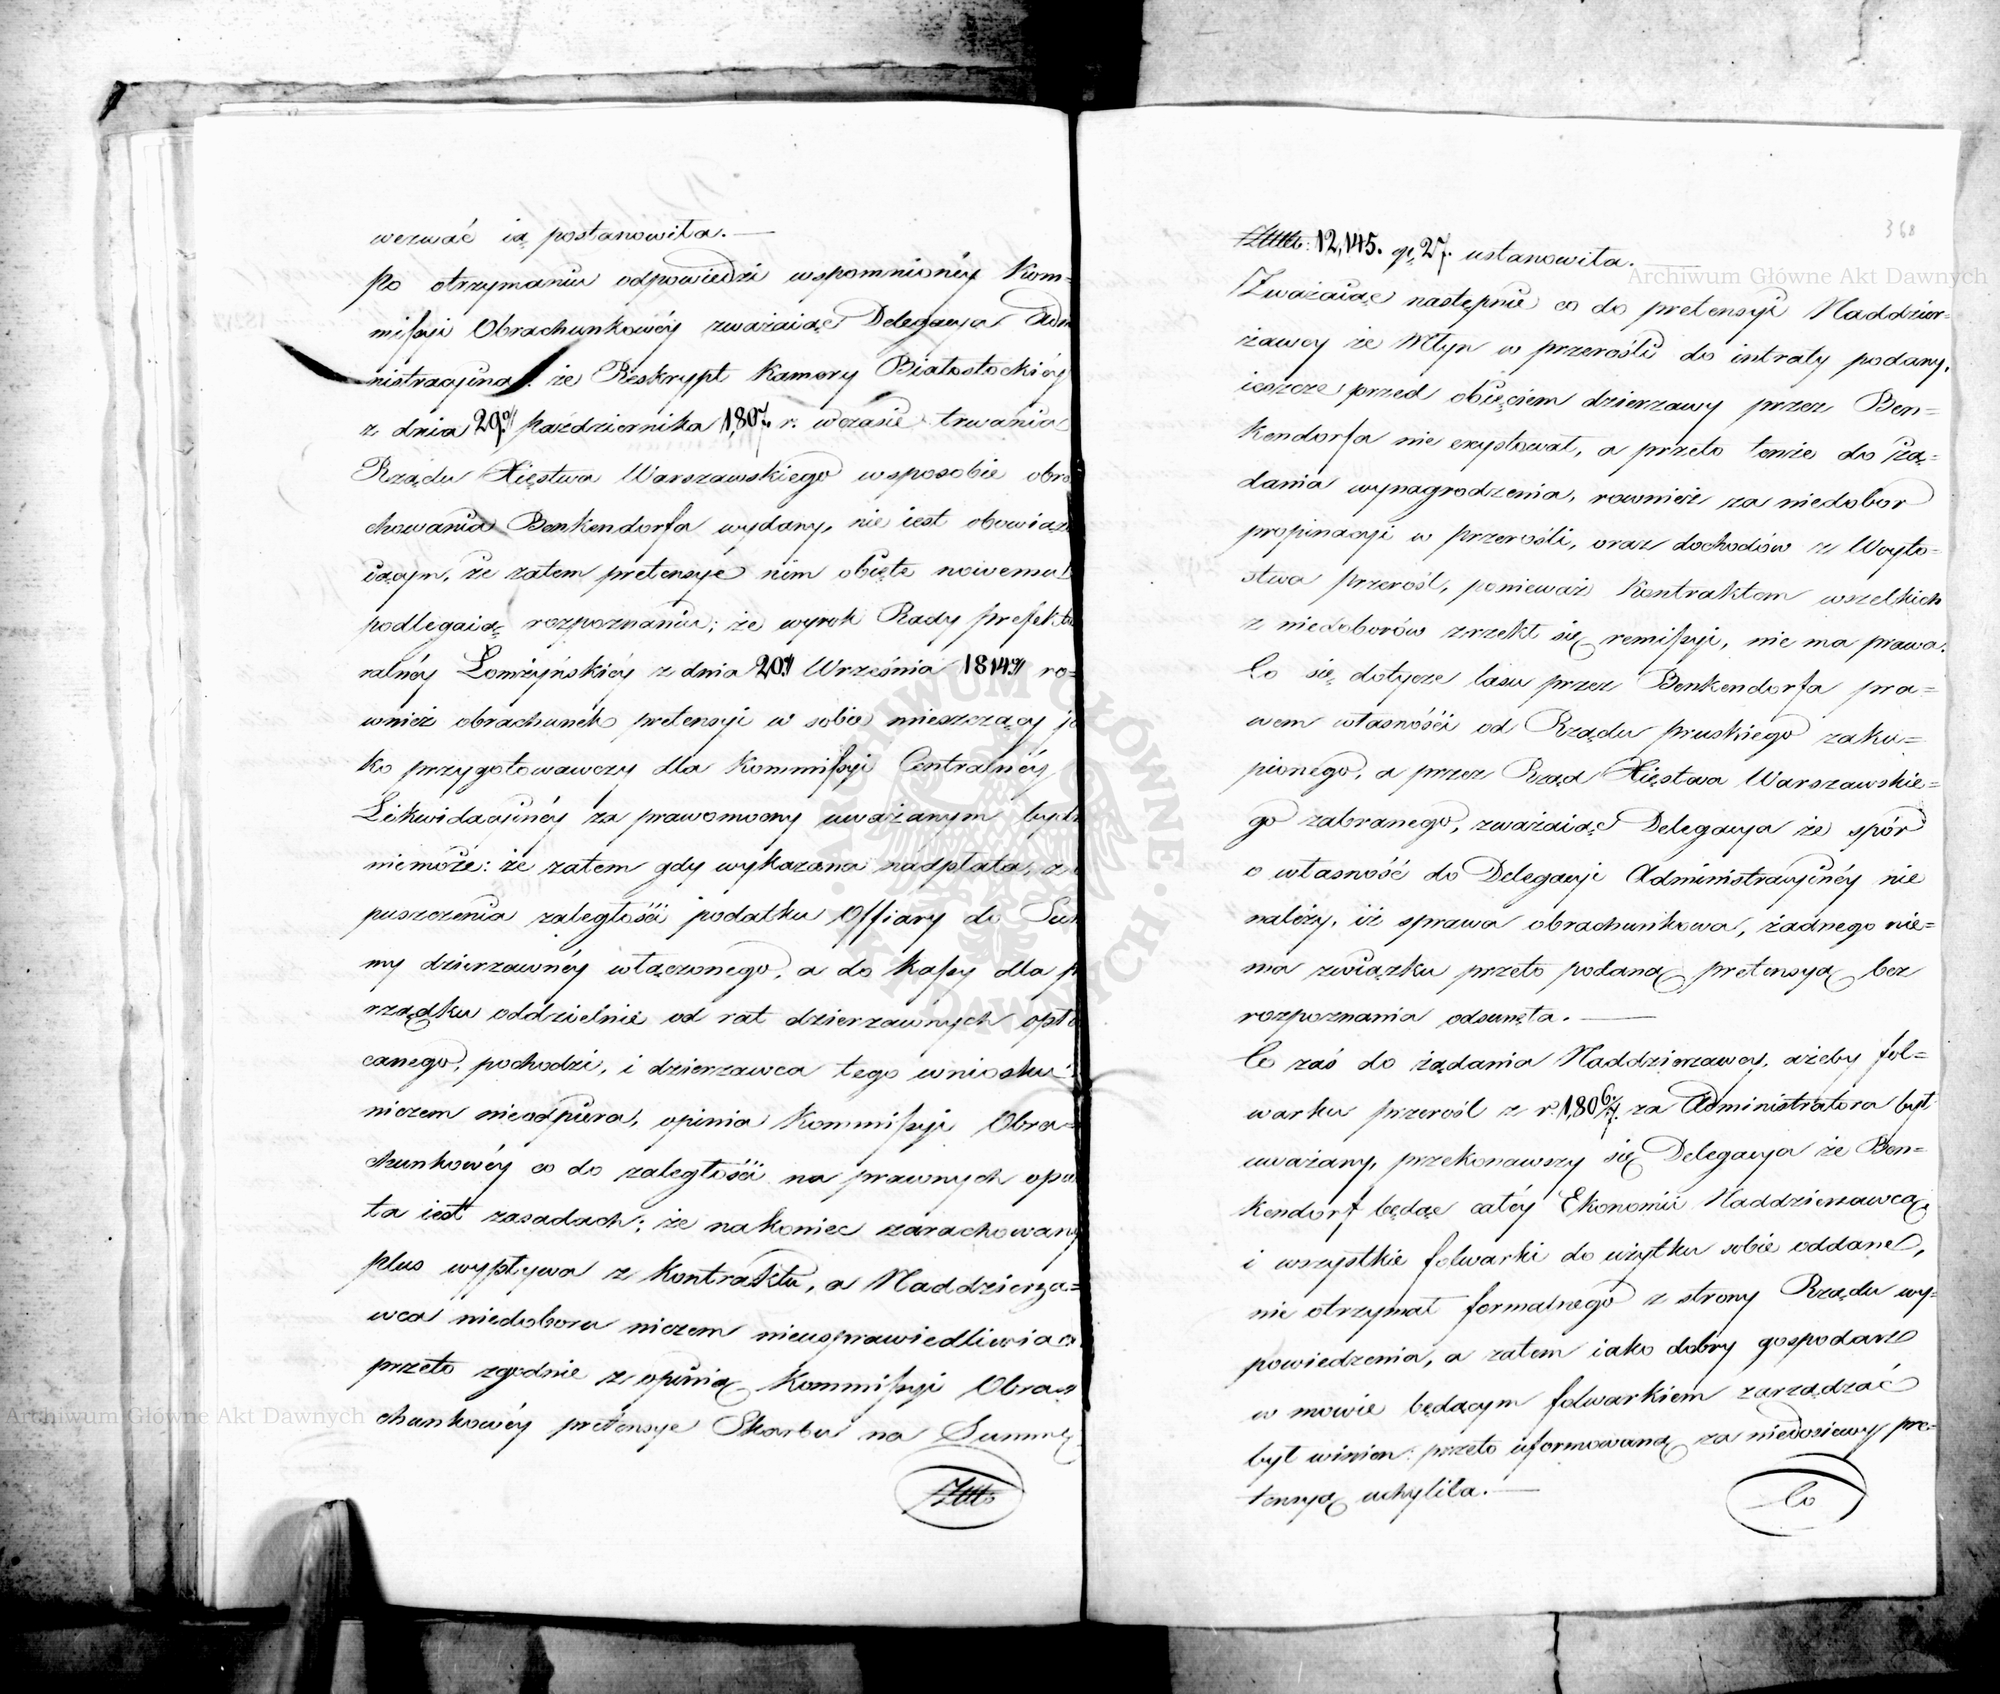 wezwać ią postanowiła. —
Po otrzymaniu odpowiedzi wspomnionéy Kom=
missyi Obrachunkowéy zważaiąc Delegacya Adm
nistracyina: że Reskrypt Kamory Białostockiéy
z dnia 29go Października 1,807. r. wczasie trwania
Rządu Xięstwa Warszawskiego wsposobie obra
chowania Benkendorfa wydany, nie iest obowiąz
iącym, że zatem pretensye nim obięte nowemu
podlegaią rozpoznaniu; że wyrok Rady prefektu
ralnéy Łomżyńskiéy z dnia 20go Września 1814go ro=
wnież obrachunek pretensyi w sobie mieszczący ja
ko przygotowawczy dla Kommissyi Centralnéy
Likwidacyinéy za prawomocny uważanym bydź
niemoże: że zatem gdy wykazana nadpłata, z o
puszczenia zaległości podatku Offiary do Sum
my dzierzawnéy włączonego, a do kassy dla p
rządku oddzielnie od rat dzierzawnych opła
canego, pochodzi, i dzierzawca tego wniosku
niczem nieodpiera, opinia Kommissyi Obra=
chunkowéy co do zaległości na prawnych opar
ta iest zasadach; że nakoniec zarachowany
plus wypływa z Kontraktu, a Naddzierza=
wca niedoboru niczem nieusprawiedliwia
przeto zgodnie z opinią Kommissyi Obra
chunkowéy pretensye Skarbu na Summę
Złtto
368
Złtto: 12,145. gr. 27. ustanowiła. —
Zważaiąc następnie co do pretensyi Naddzier=
żawcy że Młyn w przerośli do intraty podany,
ieszcze przed obięciem dzierzawy przez Ben=
kendorfa nie exystował, a przeto tenże do żą=
dania wynagrodzenia, rownież za niedobor
propinacyi w przerośli, oraz dochodów z Woyto=
stwa przerośl, ponieważ Kontraktem wszelkich
z niedoborów zrzekł się remissyi, nie ma prawa.
Co się dotycze lasu przez Benkendorfa pra=
wem własności od Rządu pruskiego zaku=
pionego, a przez Rząd Xięstwa Warszawskie=
go zabranego, zważaiąc Delegacya że spór
o własność do Delegacyi Administracyinéy nie
należy, iż sprawa obrachunkowa, żadnego nie=
ma związku przeto podaną pretensyą bez
rozpoznania odsunęta. —
Co zaś do żądania Naddzierzawcy, ażeby fol=
warku przerośl z r. 1,806/7. za Administratora był
uważany, przekonawszy się Delegacya że Ben=
kendorf będąc całéy Ekonomii Naddzierzawcą,
i wszystkie folwarki do użytku sobie oddane,
nie otrzymał formalnego z strony Rządu wy=
powiedzenia, a zatem iako dobry gospodarz
w mowie będącym folwarkiem zarządzać
był winien: przeto uformowaną za niedosiewy pre=
tensyą uchyliła. —
Co
Archiwum Główne Akt Dawnych
Archiwum Główne Akt Dawnych
ARCHIWUM GŁÓWNE AKT DAWNYCH